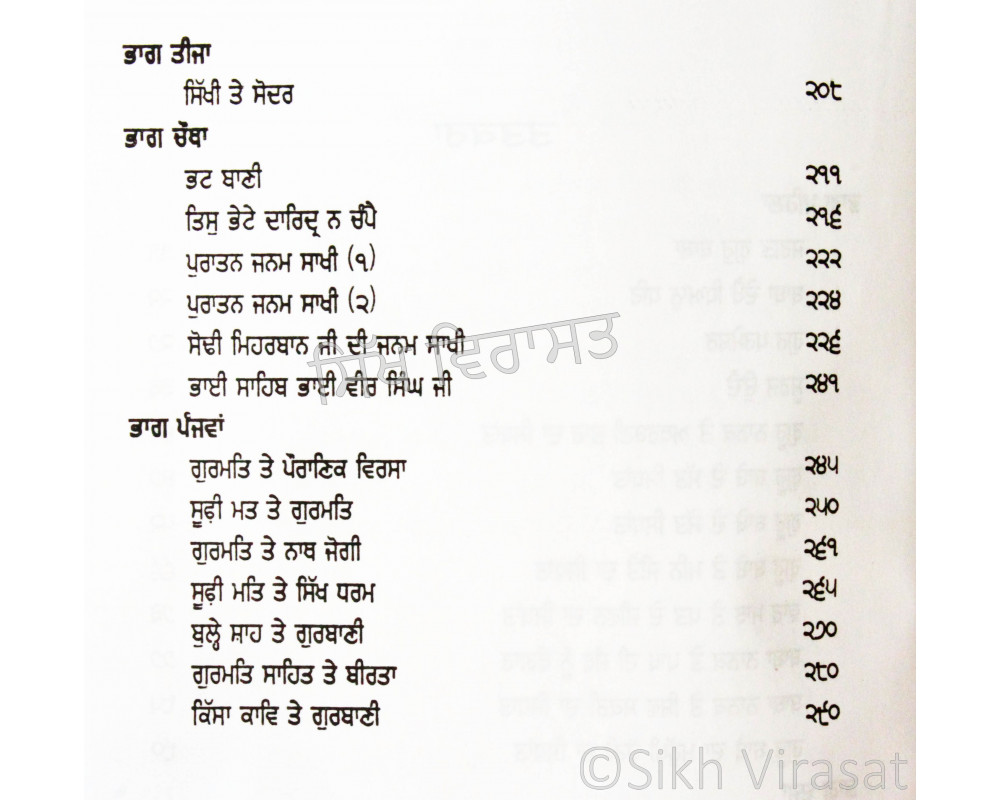 ਭਾਗ ਤੀਜਾ
ਸਿੱਖੀ ਤੇ ਸੋਦਰ ੨੦੮
ਭਾਗ ਚੌਥਾ
ਭਟ ਬਾਣੀ ੨੧੧
ਤਿਸੁ ਭੇਟੇ ਦਾਰਿਦ੍ਰ ਨ ਚੰਪੈ ੨੧੬
ਪੁਰਾਤਨ ਜਨਮ ਸਾਖੀ (੧) ੨੨੨
ਪੁਰਾਤਨ ਜਨਮ ਸਾਖੀ (੨) ੨੨੪
ਸੋਢੀ ਮਿਹਰਬਾਨ ਜੀ ਦੀ ਜਨਮ ਸਾਖੀ ੨੨੬
ਸਿੱਖ ਵਿਰਾਸਤ
ਭਾਈ ਸਾਹਿਬ ਭਾਈ ਵੀਰ ਸਿੰਘ ਜੀ ੨੪੧
ਭਾਗ ਪੰਜਵਾਂ
ਗੁਰਮਤਿ ਤੇ ਪੌਰਾਣਿਕ ਵਿਰਸਾ ੨੪੫
ਸੂਫ਼ੀ ਮਤ ਤੇ ਗੁਰਮਤਿ ੨੫੦
ਗੁਰਮਤਿ ਤੇ ਨਾਥ ਜੋਗੀ ੨੬੧
ਸੂਫ਼ੀ ਮਤਿ ਤੇ ਸਿੱਖ ਧਰਮ ੨੬੫
ਬੁਲ੍ਹੇ ਸ਼ਾਹ ਤੇ ਗੁਰਬਾਣੀ ੨੭੦
ਗੁਰਮਤਿ ਸਾਹਿਤ ਤੇ ਬੀਰਤਾ ੨੮੦
ਕਿੱਸਾ ਕਾਵਿ ਤੇ ਗੁਰਬਾਣੀ ੨੯੦
©Sikh Virasat